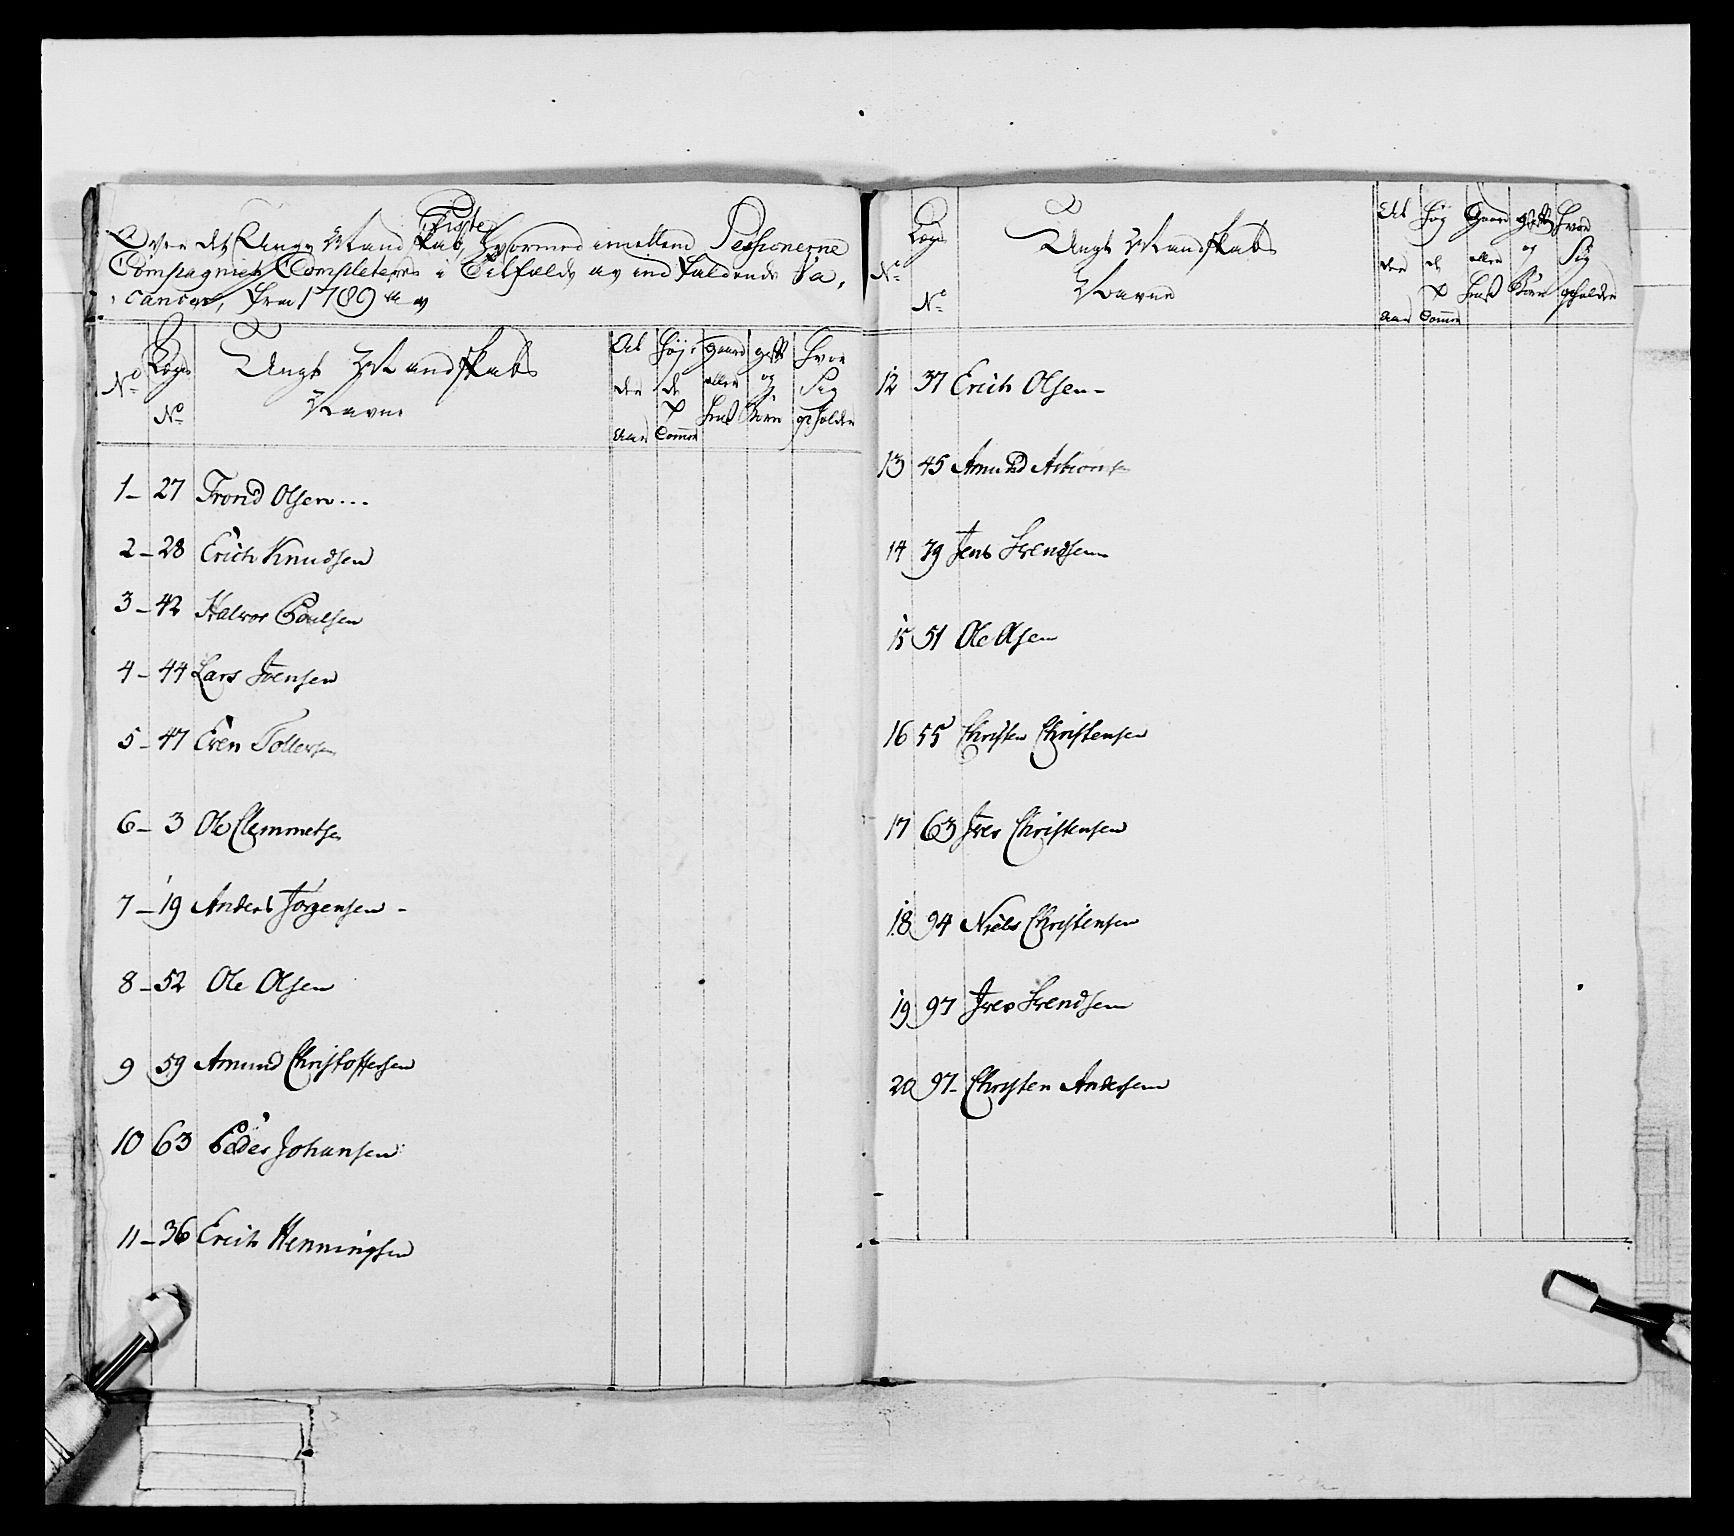 Liste
Over det Unge Mandskab, hvormed imellem Sessionerne
Compagniet Completeres i Tilfælde av indfaldende Va-
cancer, fra 1789 til
No Lægs No Ungt Mandskabs Navne Al der Aar Høj de Comm Gaard eller Huus gift og Børn hvor Sig opholder
1 - 27 Trond Olsen ...
2 - 28 Erich Knudsen
3 - 42 Halvor Poulsen
4 - 44 Lars Iversen
5 - 47 Even Tollersen
6 - 3 Ole Clemmetsen
7 - 19 Anders Jørgensen -
8 - 52 Ole Olsen
9 59 Amund Christoffersen
10 63 Peder Johansen
11 - 36 Erich Henningsen
No Lægs No Ungt Mandskabs Navne Al der Aar Høj de Comm Gaard eller Huus gift og Børn hvor Sig opholder
12 37 Erich Olsen -
13 45 Amund
14 39 Jens Svendsen
15 51 Ole Olsen
16 55 Christen Christensen
17 63 Iver Christensen
18 94 Niels Christensen
19 97 Iver Svendsen
20 97 - Christen Andersen